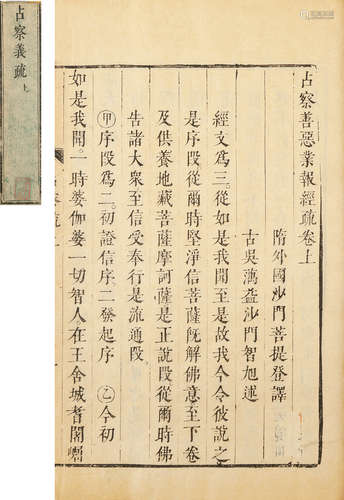 占察義疏 上
占察善惡業報經疏卷上
隋外國沙門菩提登譯
古吳蕅益沙門智旭述
經文為三。從如是我聞至是故我今令彼說之
是序段從爾時堅淨信菩薩旣解佛意至下卷
及供養地藏菩薩摩訶薩是正說段從爾時佛
告諸大衆至信受奉行是流通段
㊙甲序段為二。初證信序。二發起序 乙今初
如是我聞。一時婆伽婆一切智人在王舍城耆闍崛